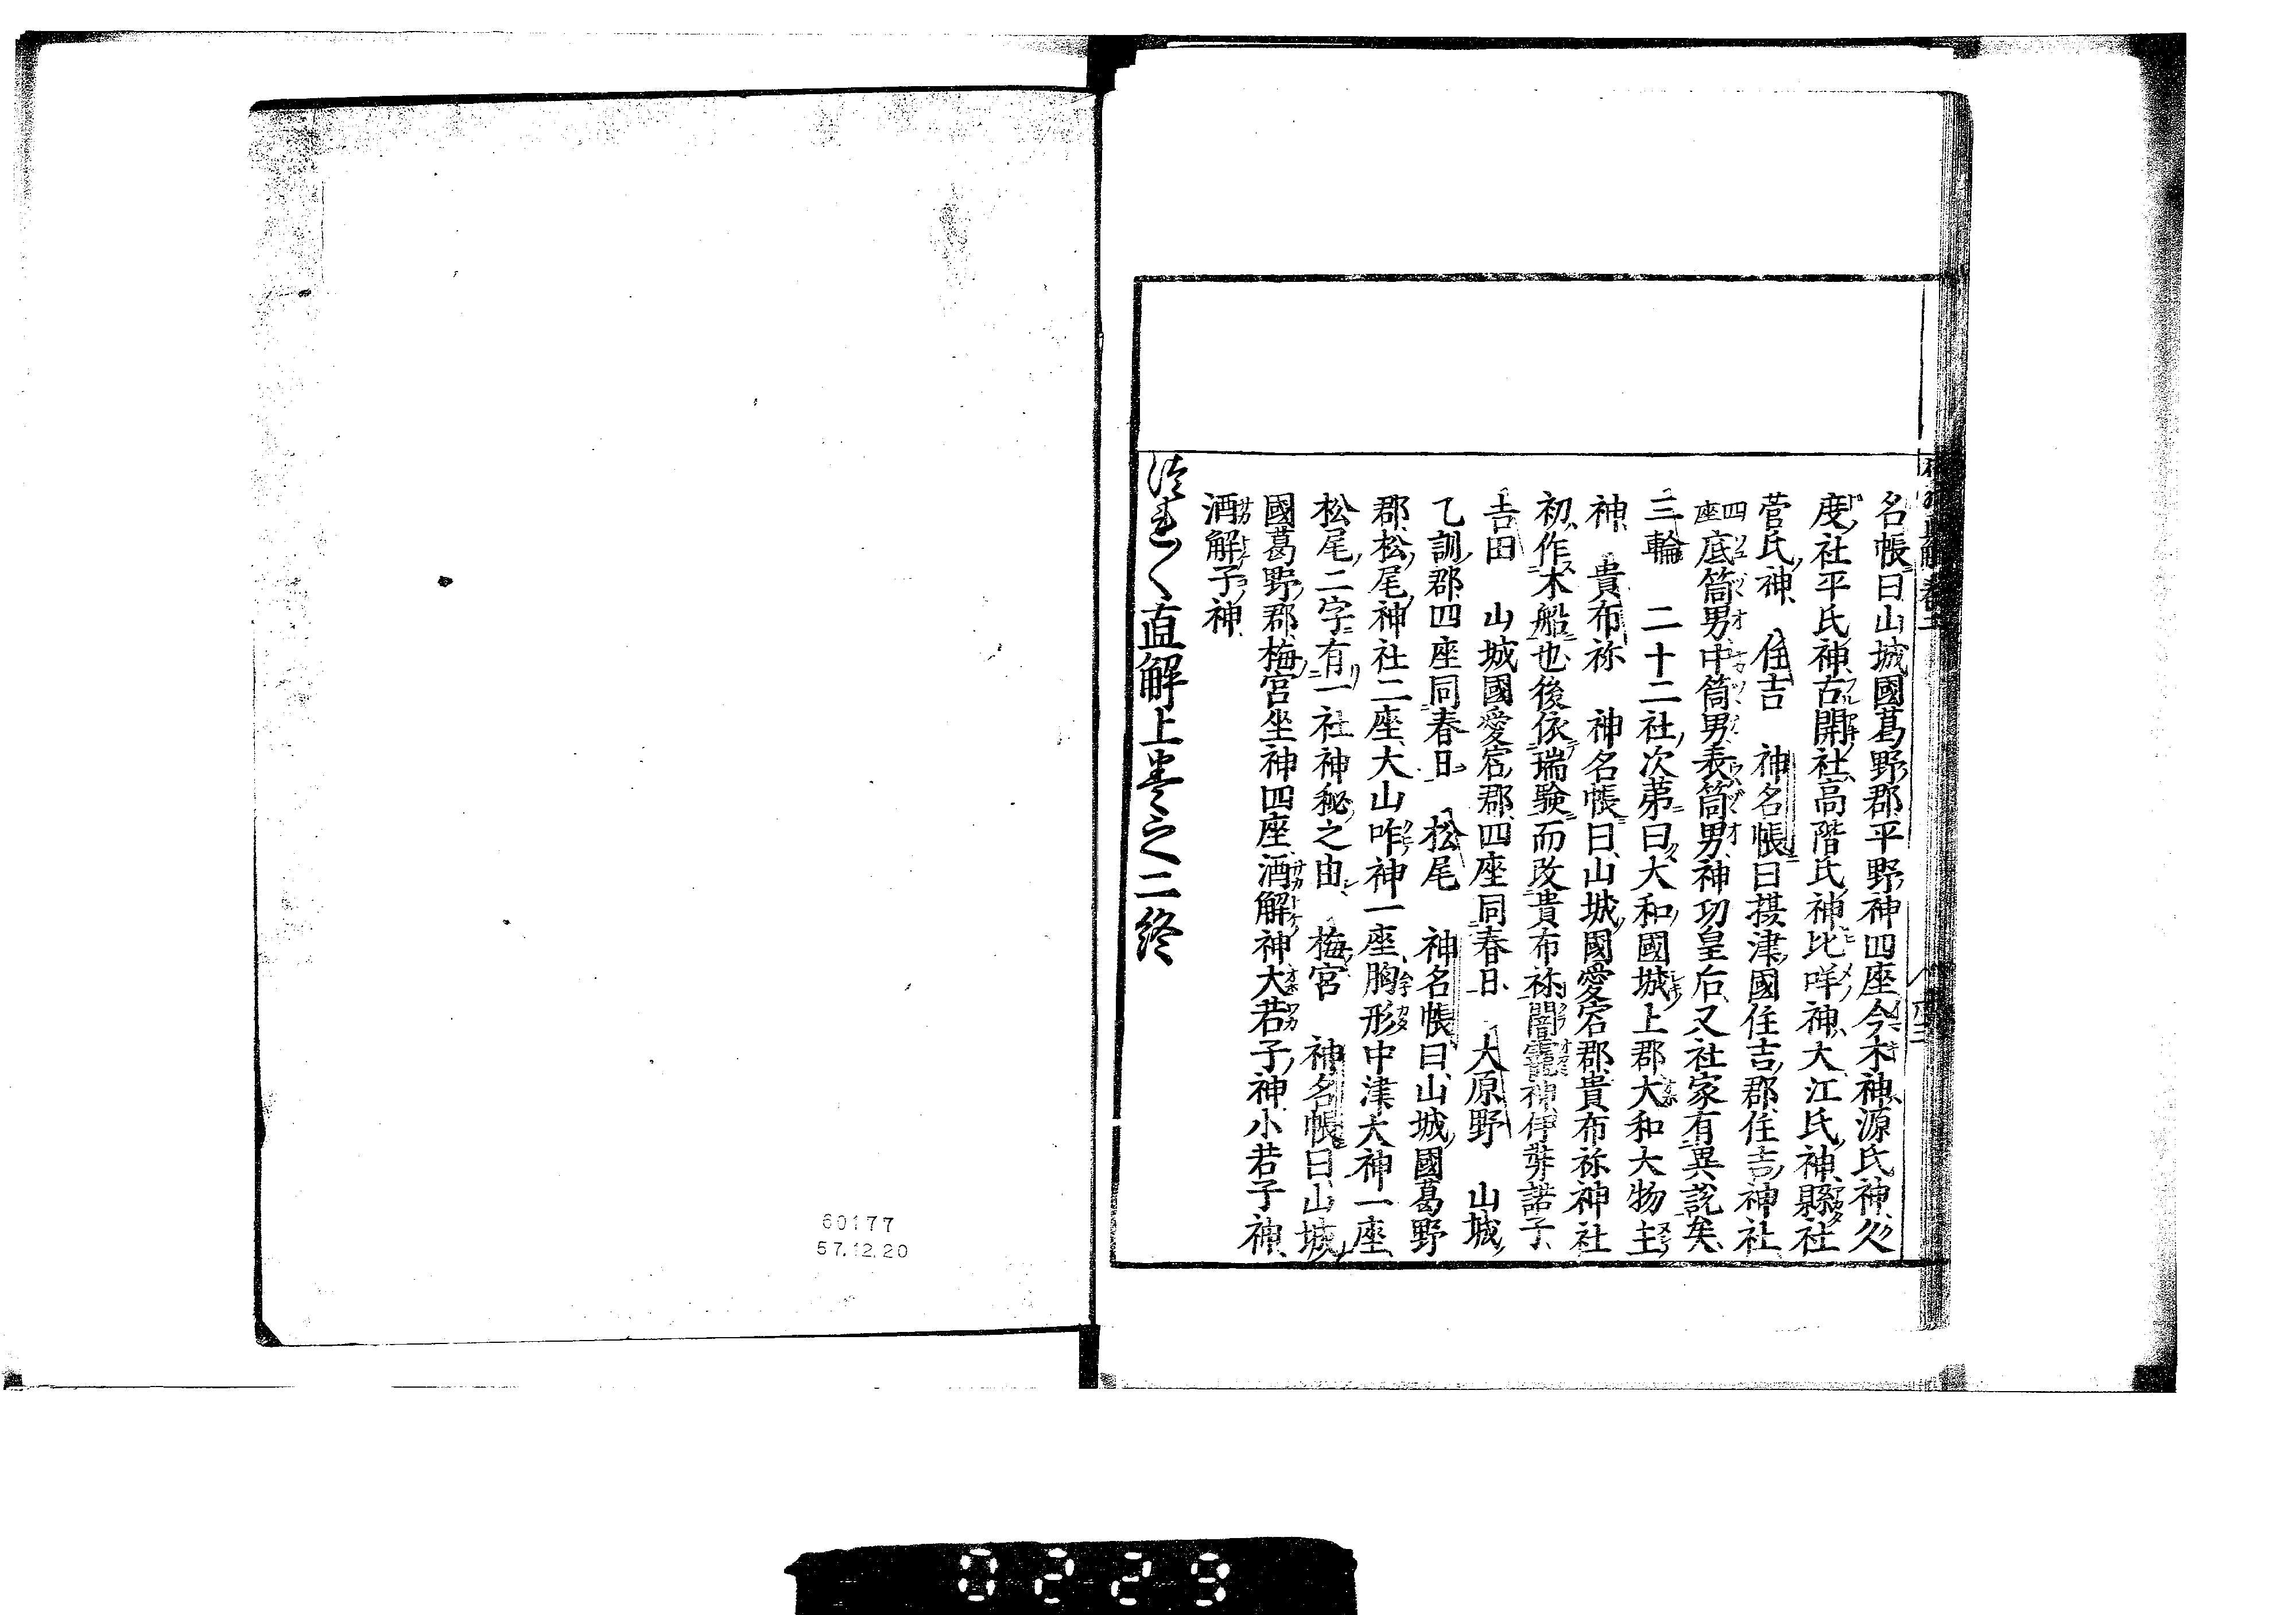 名帳曰山城國葛野郡平野神四座今木神源氏神久
度社平氏神古開社高階氏神比咩神大江氏神縣社
菅氏神 住吉 神名帳曰摂津國住吉郡住吉神社
四座底筒男中筒男表筒男神功皇后又社家有異説矣
三輪 二十二社次第曰大和國城上郡大和大物主
神 貴布祢 神名帳曰山城國愛宕郡貴布祢神社
初作木船也後依瑞験而改貴布祢闇龗神伊弉諾子
吉田 山城國愛宕郡四座同春日 大原野 山城
乙訓郡四座同春日 松尾 神名帳曰山城國葛野
郡松尾神社二座大山咋神一座胸形中津大神一座
松尾二字有一社神秘之由 梅宮 神名帳曰山城
國葛野郡梅宮坐神四座酒解神大若子神小若子神
酒解子神
つれ〱直解上巻之二終
60177
57.12.20
0229